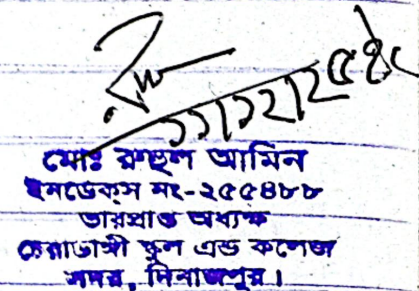 মোঃ রুহুল আমিন
ইনডেক্স নং-২৫৫৪৮৮
ভারপ্রাপ্ত অধ্যক্ষ
চেরাডাঙ্গী স্কুল এন্ড কলেজ
সদর, দিনাজপুর।